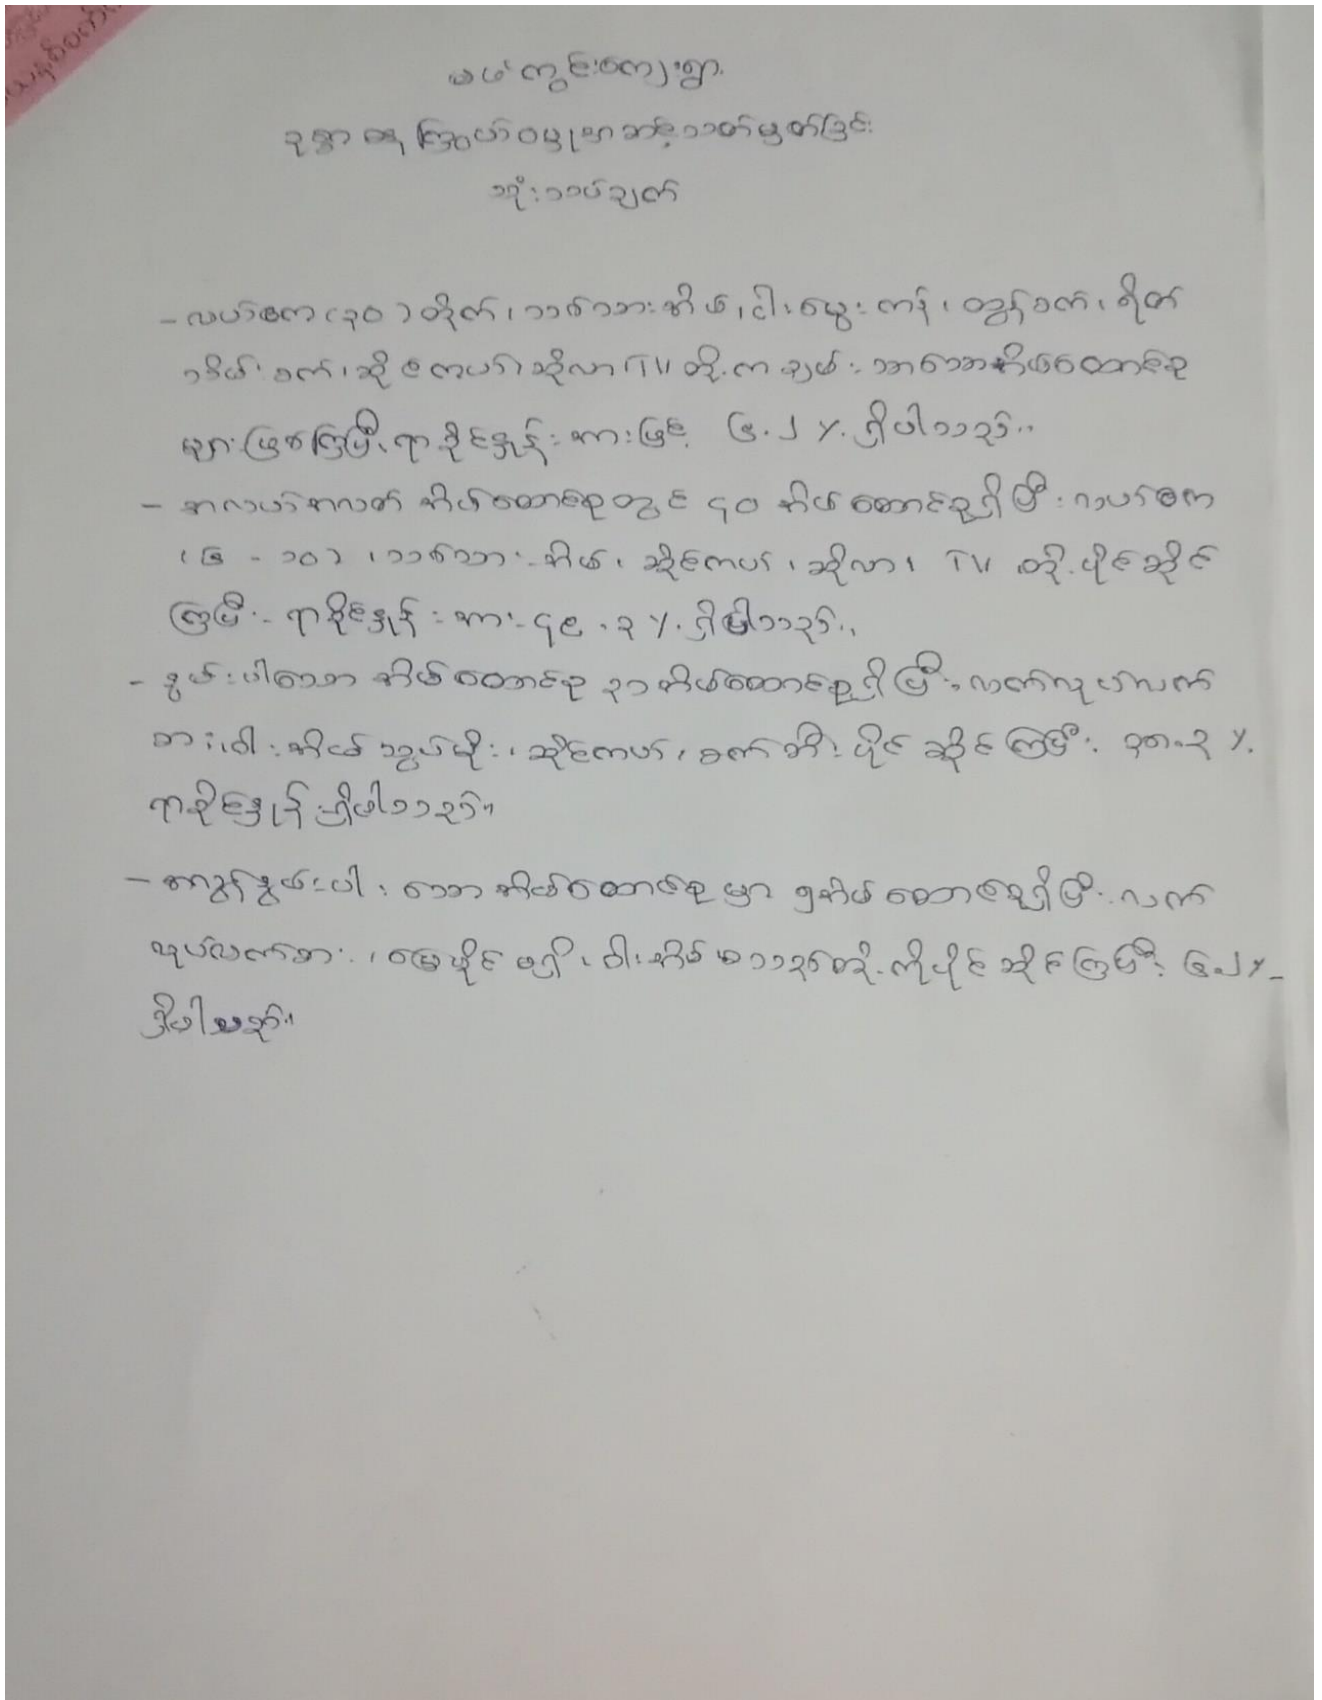 ဖယ်ကွင်းကျေးရွာ
ဥစ္စာဓနကြွယ်ဝမှုအဆင့်သတ်မှတ်ခြင်း
သုံးသပ်ချက်
- လယ်ဧက(၃၀)တိုက်၊ သစ်သားအိမ်၊ ငါးမွေးကန်၊ ထွန်စက်၊ ရိတ်
စက်၊ ဆိုင်ကယ်၊ ဆိုလာ၊ TV တို့က ချမ်းသာသောအိမ်ထောင်စု
များဖြစ်ကြပြီး ရာခိုင်နှုန်းအားဖြင့် ၆.၂ %. ရှိပါသည်။
- အလယ်အလတ် အိမ်ထောင်စုတွင် ၄၀ အိမ်ထောင်စုရှိပြီး လယ်ဧက
(၆ - ၁၀)၊ သစ်သားအိမ်၊ ဆိုင်ကယ်၊ ဆိုလာ၊ TV တို့ပိုင်ဆိုင်
ကြပြီး ရာခိုင်နှုန်းအား ၄၉.၃ %. ရှိပါသည်။
- နွမ်းပါးသော အိမ်ထောင်စု ၃၁ အိမ်ထောင်စုရှိပြီး လက်လုပ်လက်
စား၊ ဝါးအိမ် သွပ်မိုး၊ ဆိုင်ကယ်၊ စက်ဘီး ပိုင်ဆိုင်ကြပြီး ၃၈.၃ %.
ရာခိုင်နှုန်းရှိပါသည်။
- အလွန်နွမ်းပါးသော အိမ်ထောင်စုမှာ ၅ အိမ်ထောင်စုရှိပြီး လက်
လုပ်လက်စား၊ မြေပိုင်မရှိ၊ ဝါးအိမ် စသည်တို့ကိုပိုင်ဆိုင်ကြပြီး ၆.၂ %
ရှိပါသည်။